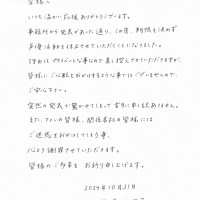 皆様へ
いつも温かい応援ありがとうございます。
事務所から発表があった通り、この度、期限を決めず
声優活動を休止させていただくことになりました。
理由はプライベートな事なので差し控えさせていただきますが、
皆様にご心配をおかけするような事ではございませんので、
ご安心下さい。
突然の発表で驚かせてしまって本当に申し訳ありません。
また、ファンの皆様、関係各社の皆様には
ご迷惑をおかけしてしまう事、
心より謝罪させていただきます。
皆様のご多幸を お祈り申し上げます。
2024年10月31日